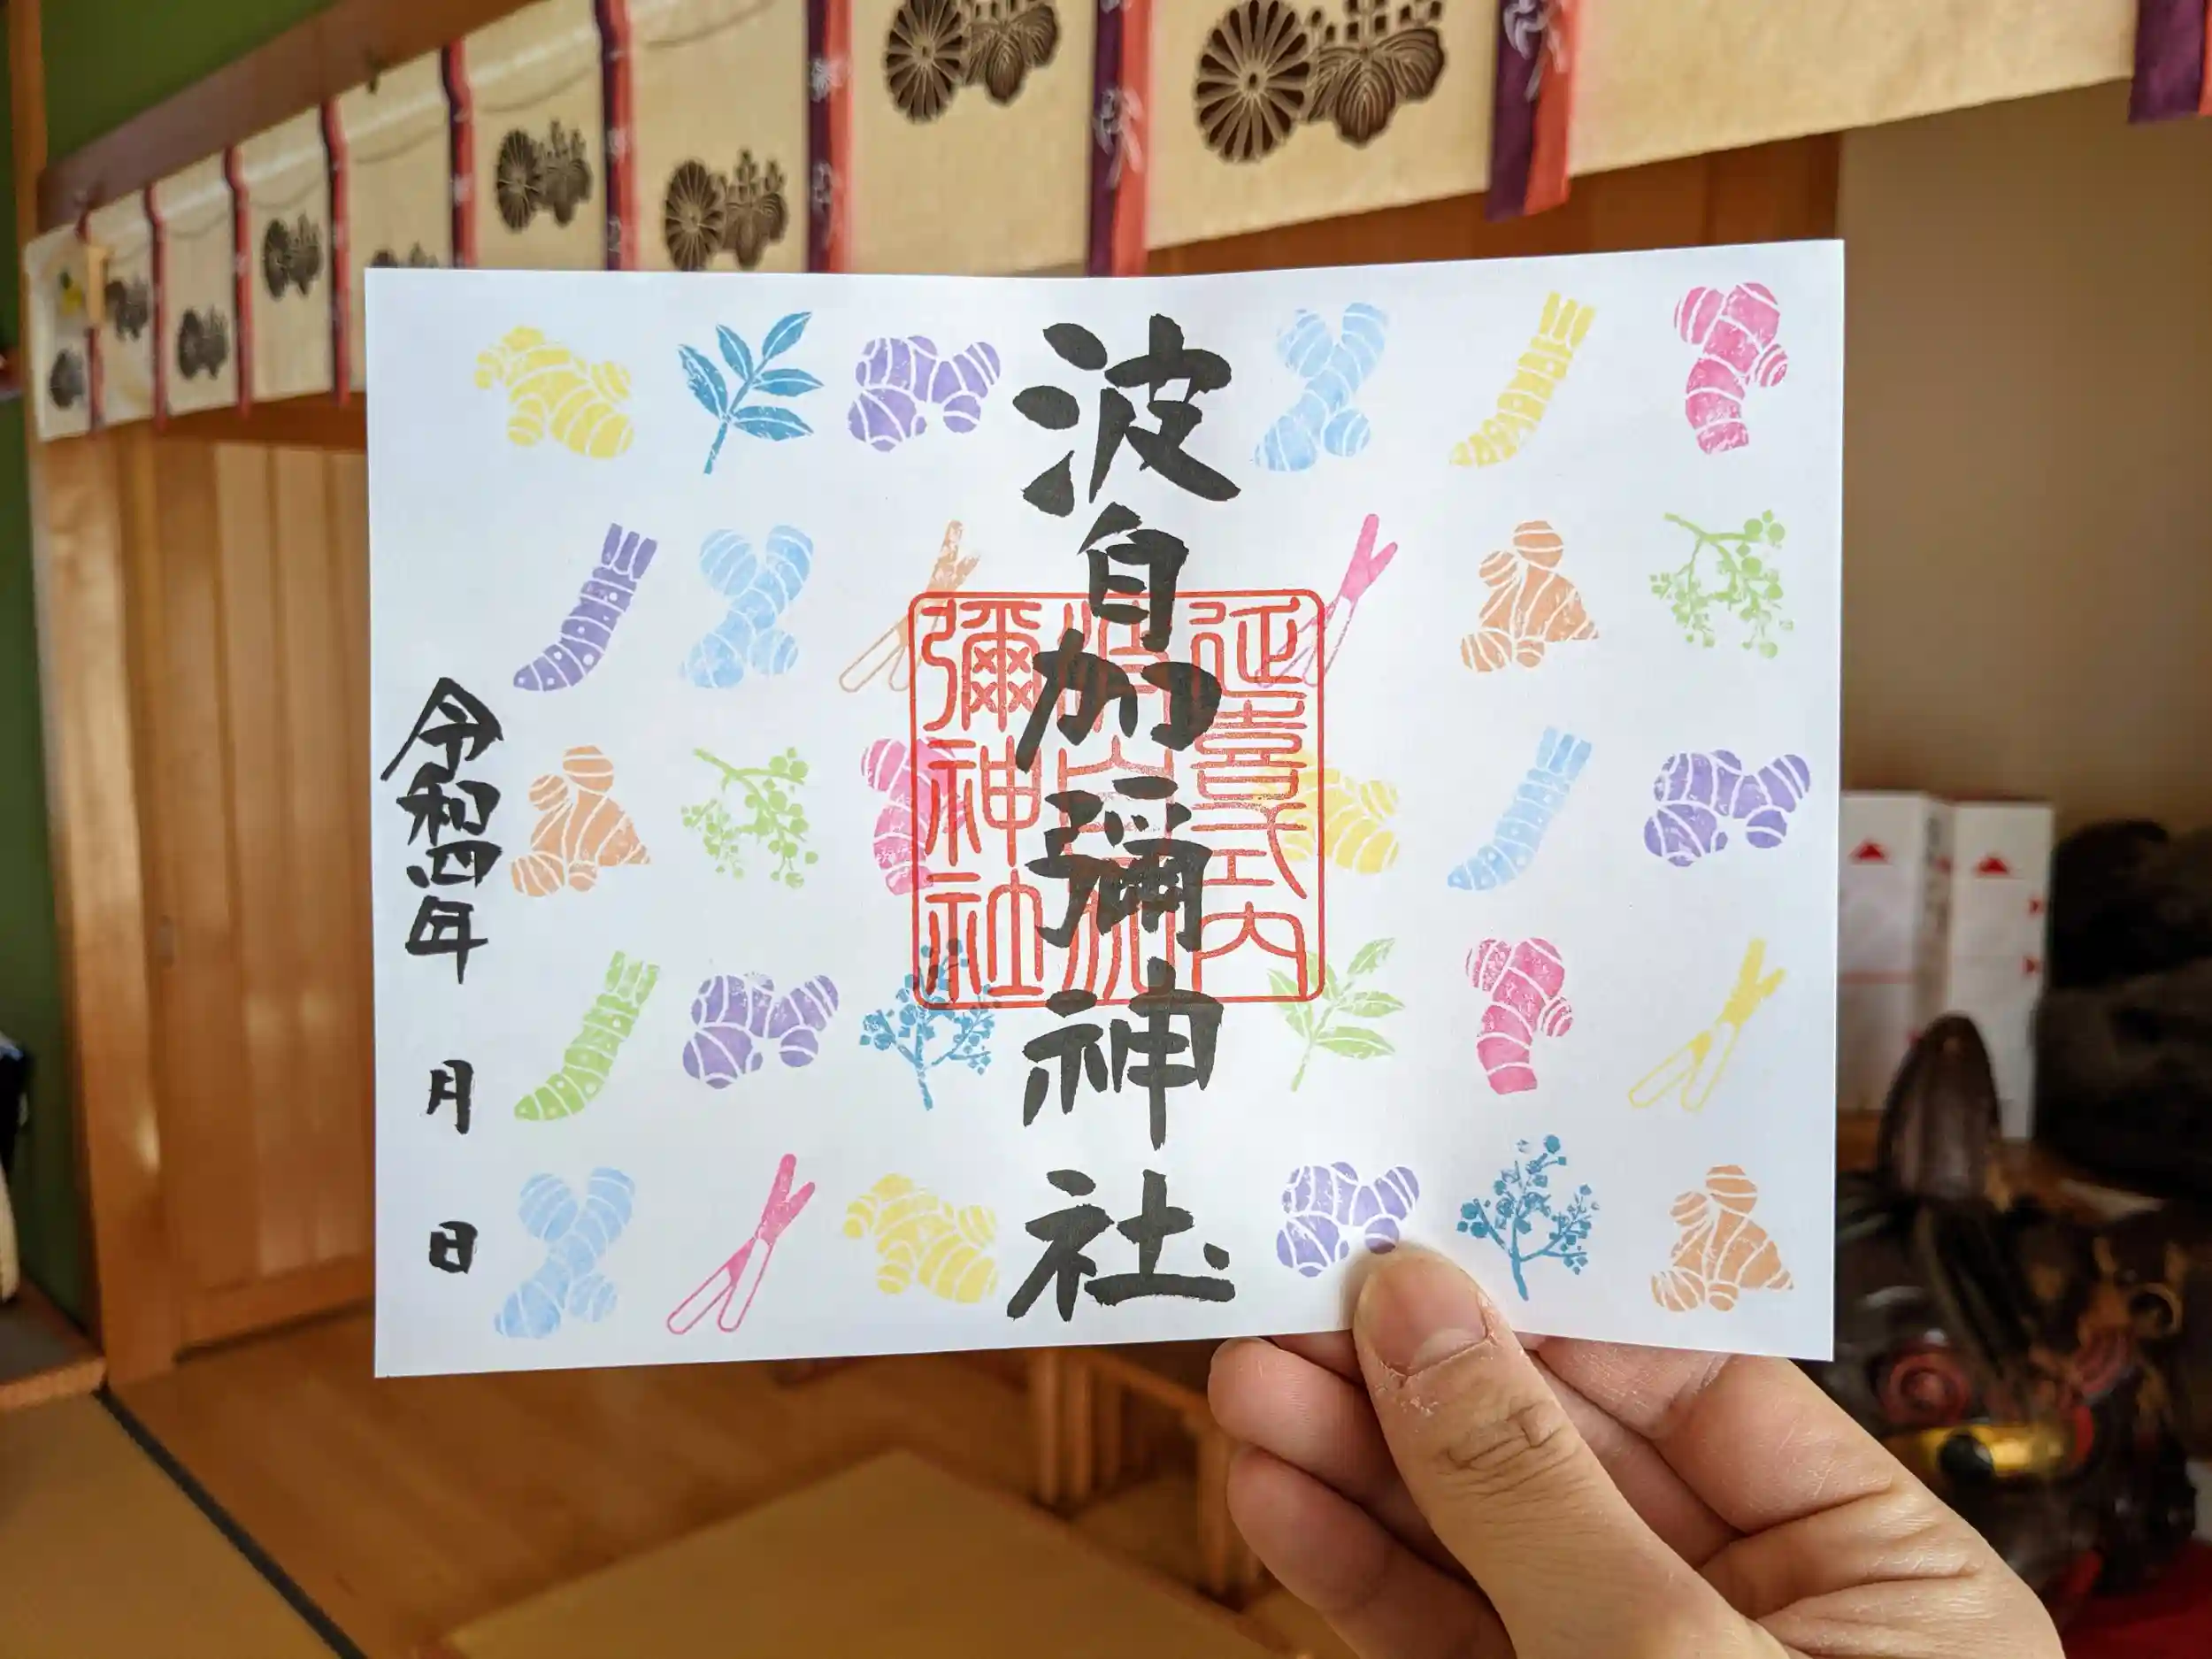 波自加彌神社
延喜式内
波自加
彌神社
令和四年 月 日